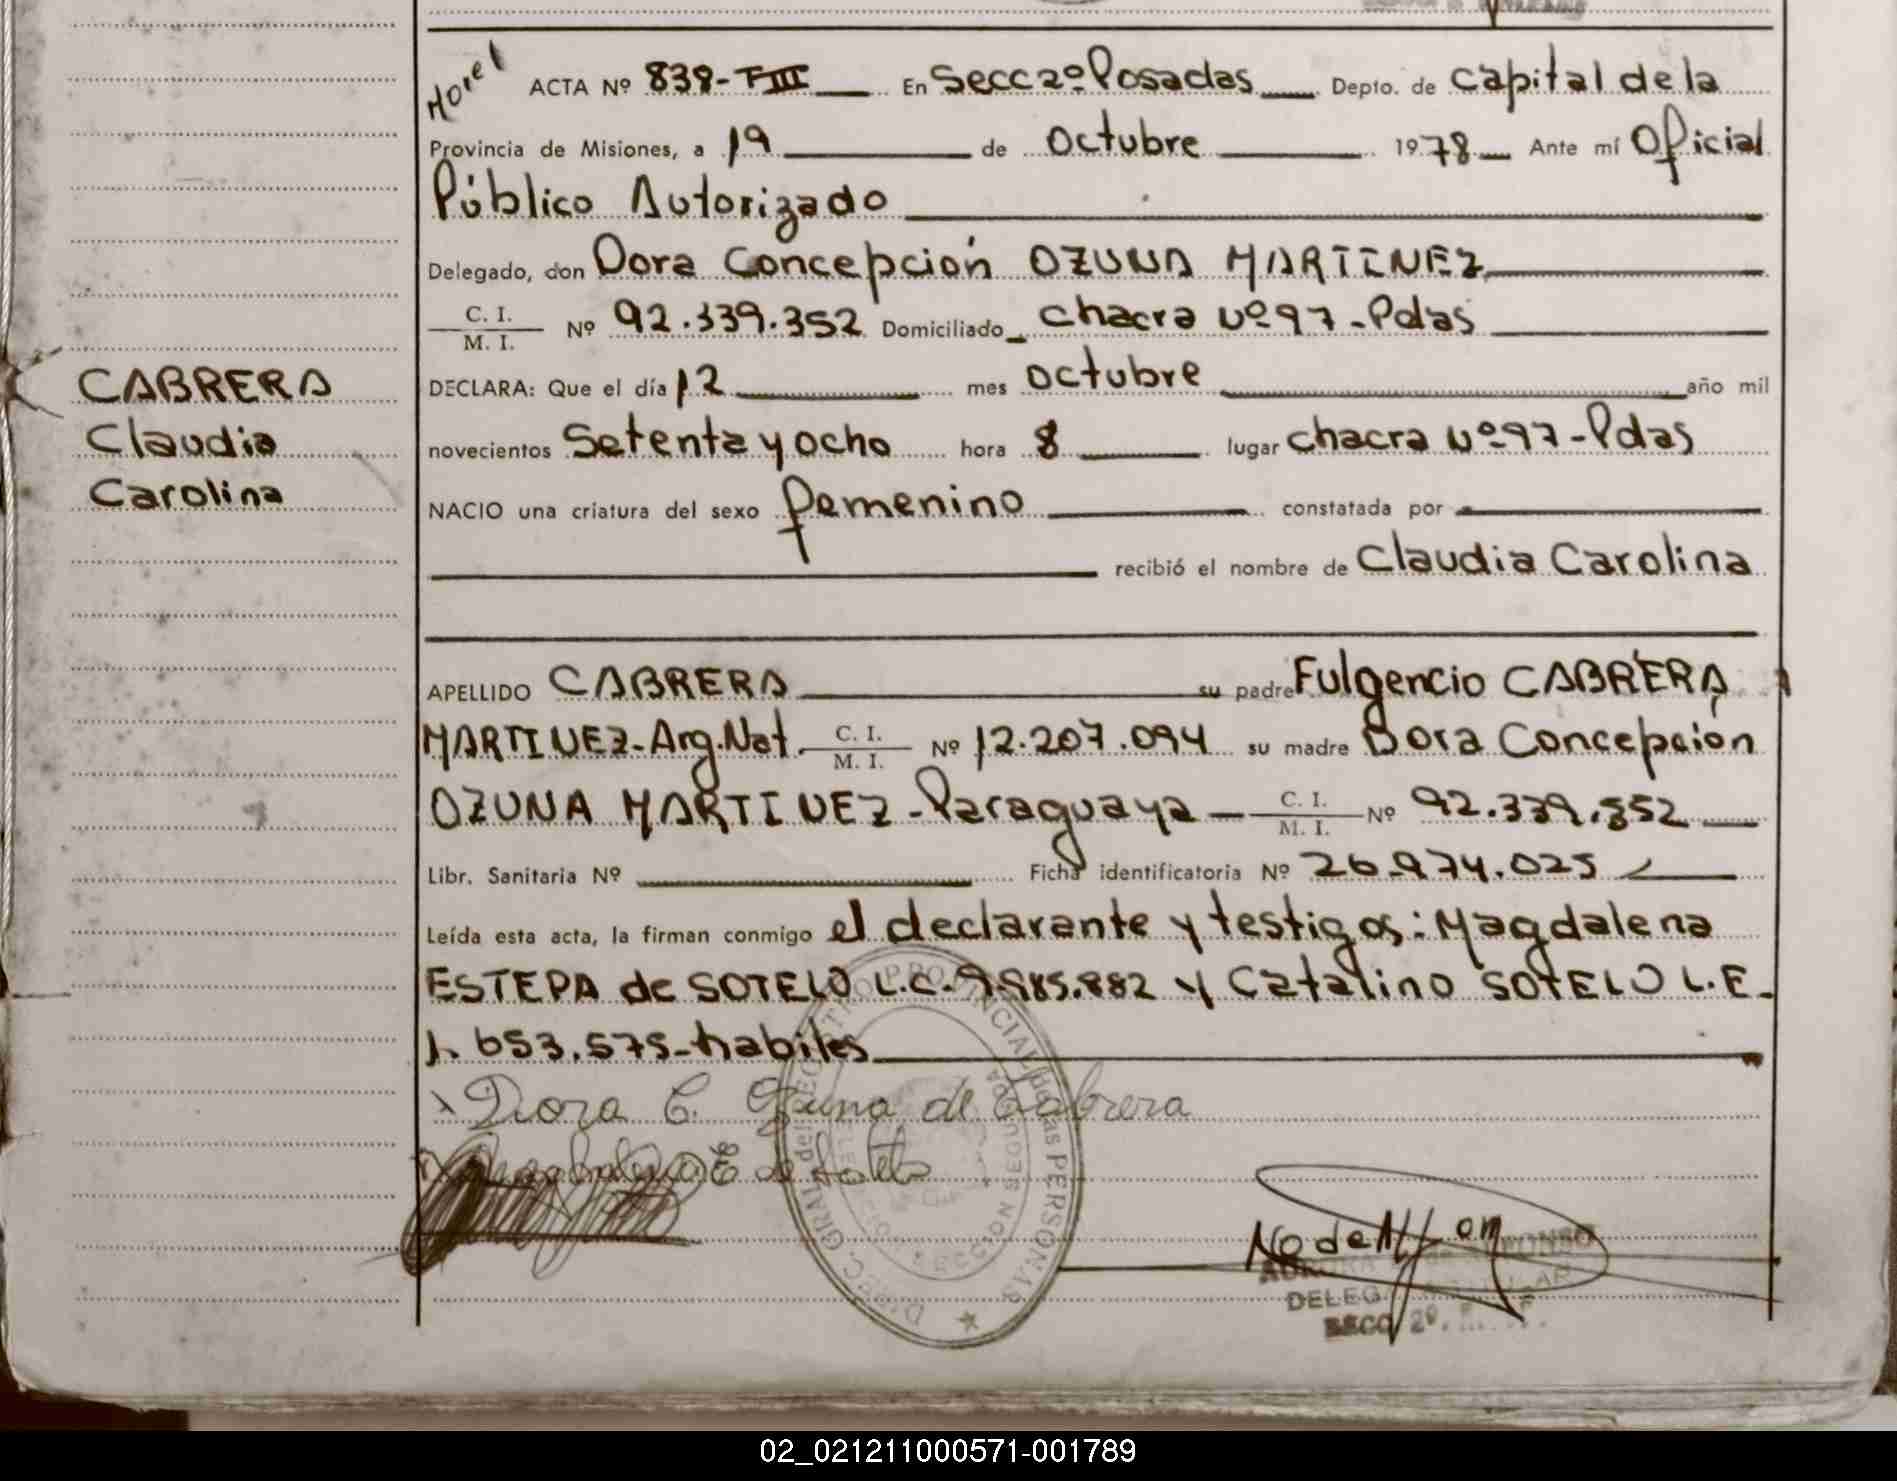 ACTA Nº 838-TIII En Secc 2º Posadas Depto. de Capital de la
Provincia de Misiones, a 19 de Octubre 1978 Ante mí Oficial
Público Autorizado
Delegado, don Dora Concepción OZUNA MARTINEZ
C. I.
M. I. Nº 92.339.352 Domiciliado chacra Nº 97 - Pdas
CABRERA
DECLARA: Que el día 12 mes octubre año mil
Claudia
novecientos Setenta y ocho hora 8 lugar chacra Nº 97 - Pdas
Carolina
NACIO una criatura del sexo femenino constatada por
recibió el nombre de Claudia Carolina
APELLIDO CABRERA su padre Fulgencio CABRERA
MARTINEZ - Arg. Nat. C. I. M. I. Nº 12.207.094 su madre Dora Concepción
OZUNA MARTINEZ - Paraguaya - C. I. M. I. Nº 92.339.352
Libr. Sanitaria Nº Ficha identificatoria Nº 26.974.025
Leída esta acta, la firman conmigo el declarante y testigos: Magdalena
ESTEPA de SOTELO L.C. 9.985.882 y Catalino SOTELO L.E.
1.653.575 - habiles
Dora C. Ozuna de Cabrera
DIREC. GRAL del REGISTRO PROVINCIAL de las PERSONAS
SECCION SEGUNDA
DELEG
SECC 2º
02_021211000571-001789